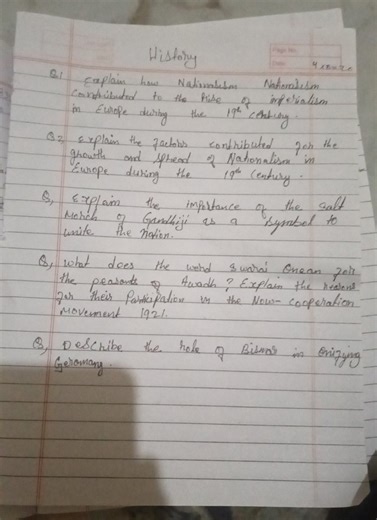 History
Page No.
Date
Q1 Explain how Nationalism Nationalism
contributed to the Rise of imperialism
in Europe during the 19th century.
Q2 Explain the factors contributed for the
growth and spread of Nationalism in
Europe during the 19th century.
Q, Explain the importance of the salt
March of Gandhiji as a symbol to
unite the Nation.
Q, what does the word swaraj mean for
the peasants of Awadh? Explain the reasons
for their Participation in the Non-cooperation
movement 1921.
Q, Describe the role of in
Germany.